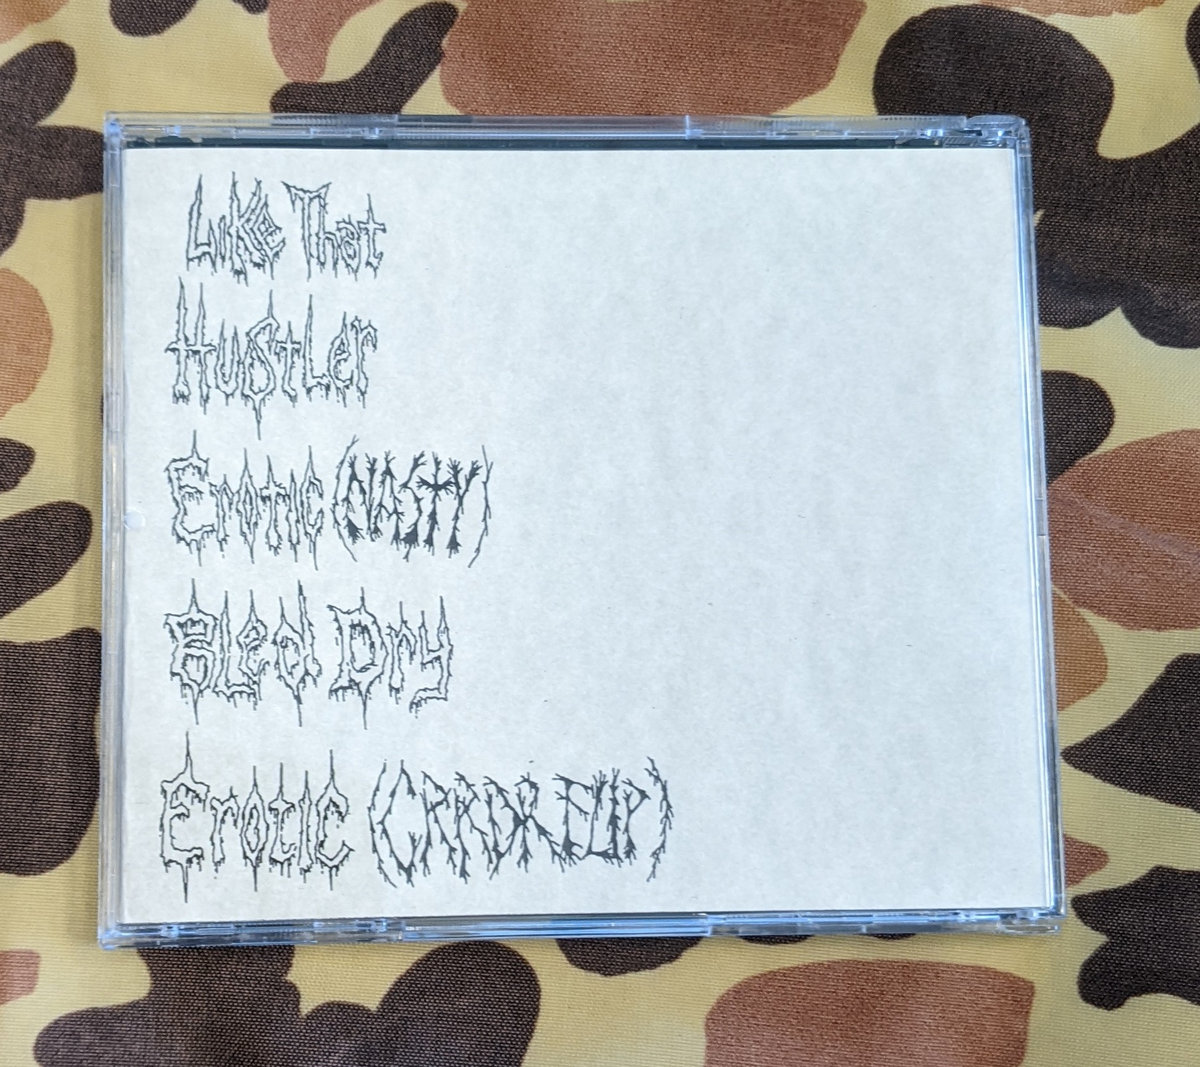 Like That
Hustler
Erotic (NASTY)
Bled Dry
Erotic (CRRDR FLIP)